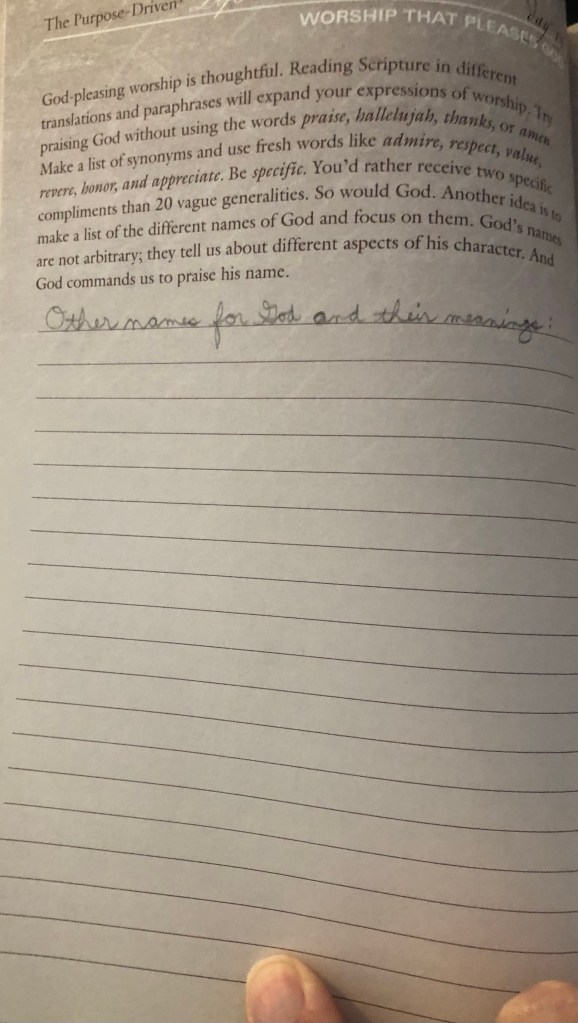 The Purpose-Driven
WORSHIP THAT PLEASES GOD
God-pleasing worship is thoughtful. Reading Scripture in different
translations and paraphrases will expand your expressions of worship. Try
praising God without using the words praise, hallelujah, thanks, or amen
Make a list of synonyms and use fresh words like admire, respect, value,
revere, honor, and appreciate. Be specific. You’d rather receive two specific
compliments than 20 vague generalities. So would God. Another idea is to
make a list of the different names of God and focus on them. God’s names
are not arbitrary; they tell us about different aspects of his character. And
God commands us to praise his name.
Other names for God and their meanings: